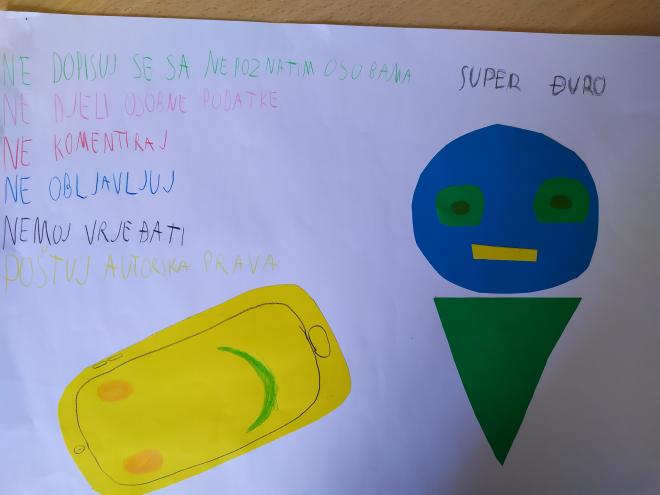 NE DOPISUJ SE SA NEPOZNATIM OSOBAMA
NE DJELI OSOBNE PODATKE
NE KOMENTIRAJ
NE OBLJAVLJUJ
NEMOJ VRJEĐATI
POŠTUJ AUTORSKA PRAVA
SUPER ĐURO